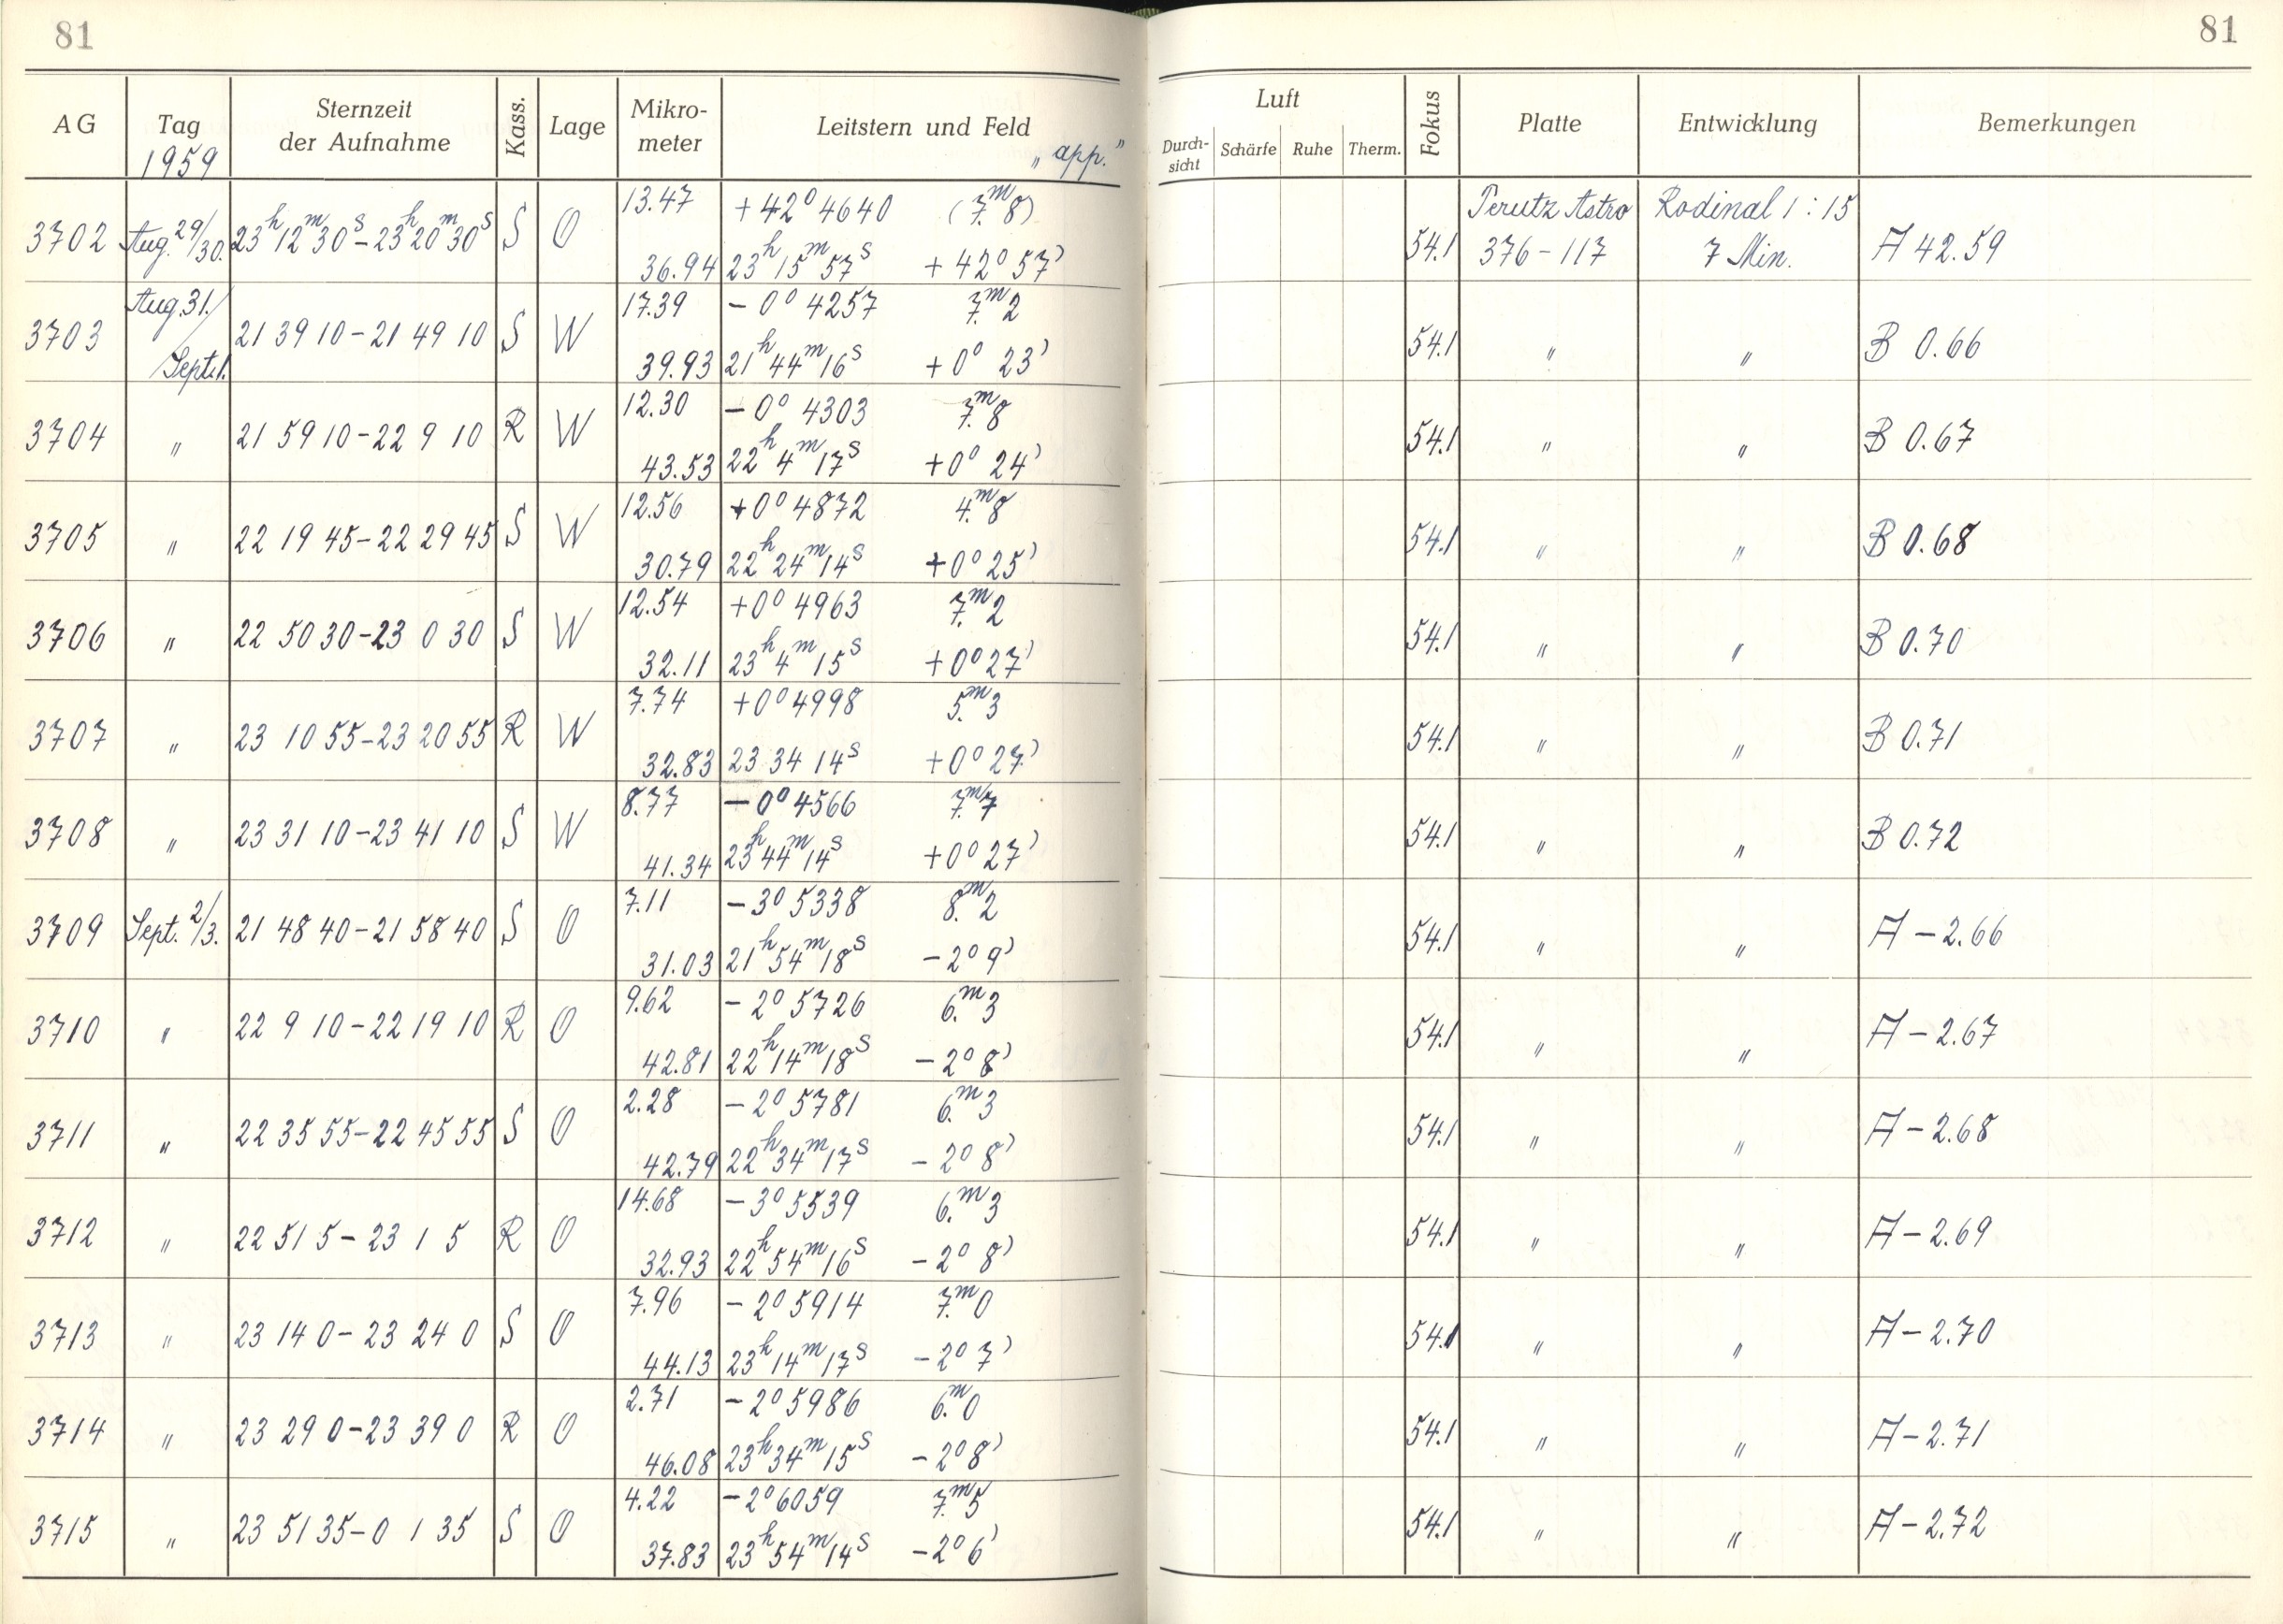 81
81
AG Tag 1959 Sternzeit der Aufnahme Kass. Lage Mikro-meter Leitstern und Feld „app.”
Luft Durch-sicht Schärfe Ruhe Therm. Fokus Platte Entwicklung Bemerkungen
3702 Aug. 29/30. 23h 12m 30s – 23h 20m 30s S O 13.47 +42° 4640 (7.m8)
36.94 23h 15m 57s +42° 57' 54.1 Perutz Astro 376-117 Rodinal 1:15 7 Min. A 42.59
3703 Aug. 31./Sept. 1. 21 39 10 – 21 49 10 S W 17.39 – 0° 4257 7.m2
39.93 21h 44m 16s +0° 23' 54.1 " " B 0.66
3704 " 21 59 10 – 22 9 10 R W 12.30 – 0° 4303 7.m8
43.53 22h 4m 17s +0° 24' 54.1 " " B 0.67
3705 " 22 19 45 – 22 29 45 S W 12.56 +0° 4872 4.m8
30.79 22h 24m 14s +0° 25' 54.1 " " B 0.68
3706 " 22 50 30 – 23 0 30 S W 12.54 +0° 4963 7.m2
32.11 23h 4m 15s +0° 27' 54.1 " " B 0.70
3707 " 23 10 55 – 23 20 55 R W 7.74 +0° 4998 5.m3
32.83 23 34 14s +0° 27' 54.1 " " B 0.71
3708 " 23 31 10 – 23 41 10 S W 8.77 – 0° 4566 7.m7
41.34 23h 44m 14s +0° 27' 54.1 " " B 0.72
3709 Sept. 2/3. 21 48 40 – 21 58 40 S O 7.11 – 3° 5338 8.m2
31.03 21h 54m 18s – 2° 9' 54.1 " " A – 2.66
3710 " 22 9 10 – 22 19 10 R O 9.62 – 2° 5726 6.m3
42.81 22h 14m 18s – 2° 8' 54.1 " " A – 2.67
3711 " 22 35 55 – 22 45 55 S O 2.28 – 2° 5781 6.m3
42.79 22h 34m 17s – 2° 8' 54.1 " " A – 2.68
3712 " 22 51 5 – 23 1 5 R O 14.68 – 3° 5539 6.m3
32.93 22h 54m 16s – 2° 8' 54.1 " " A – 2.69
3713 " 23 14 0 – 23 24 0 S O 7.96 – 2° 5914 7.m0
44.13 23h 14m 17s – 2° 7' 54.1 " " A – 2.70
3714 " 23 29 0 – 23 39 0 R O 2.71 – 2° 5986 6.m0
46.08 23h 34m 15s – 2° 8' 54.1 " " A – 2.71
3715 " 23 51 35 – 0 1 35 S O 4.22 – 2° 6059 7.m5
37.83 23h 54m 14s – 2° 6' 54.1 " " A – 2.72